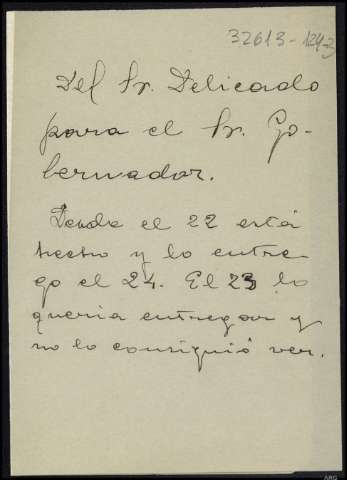 32613-124-3
Del Sr. Delicado
para el Sr. Go-
bernador.
Desde el 22 está
hecho y lo entre-
go el 24. El 23 lo
queria entregar y
no lo consiguió ver.
ARG